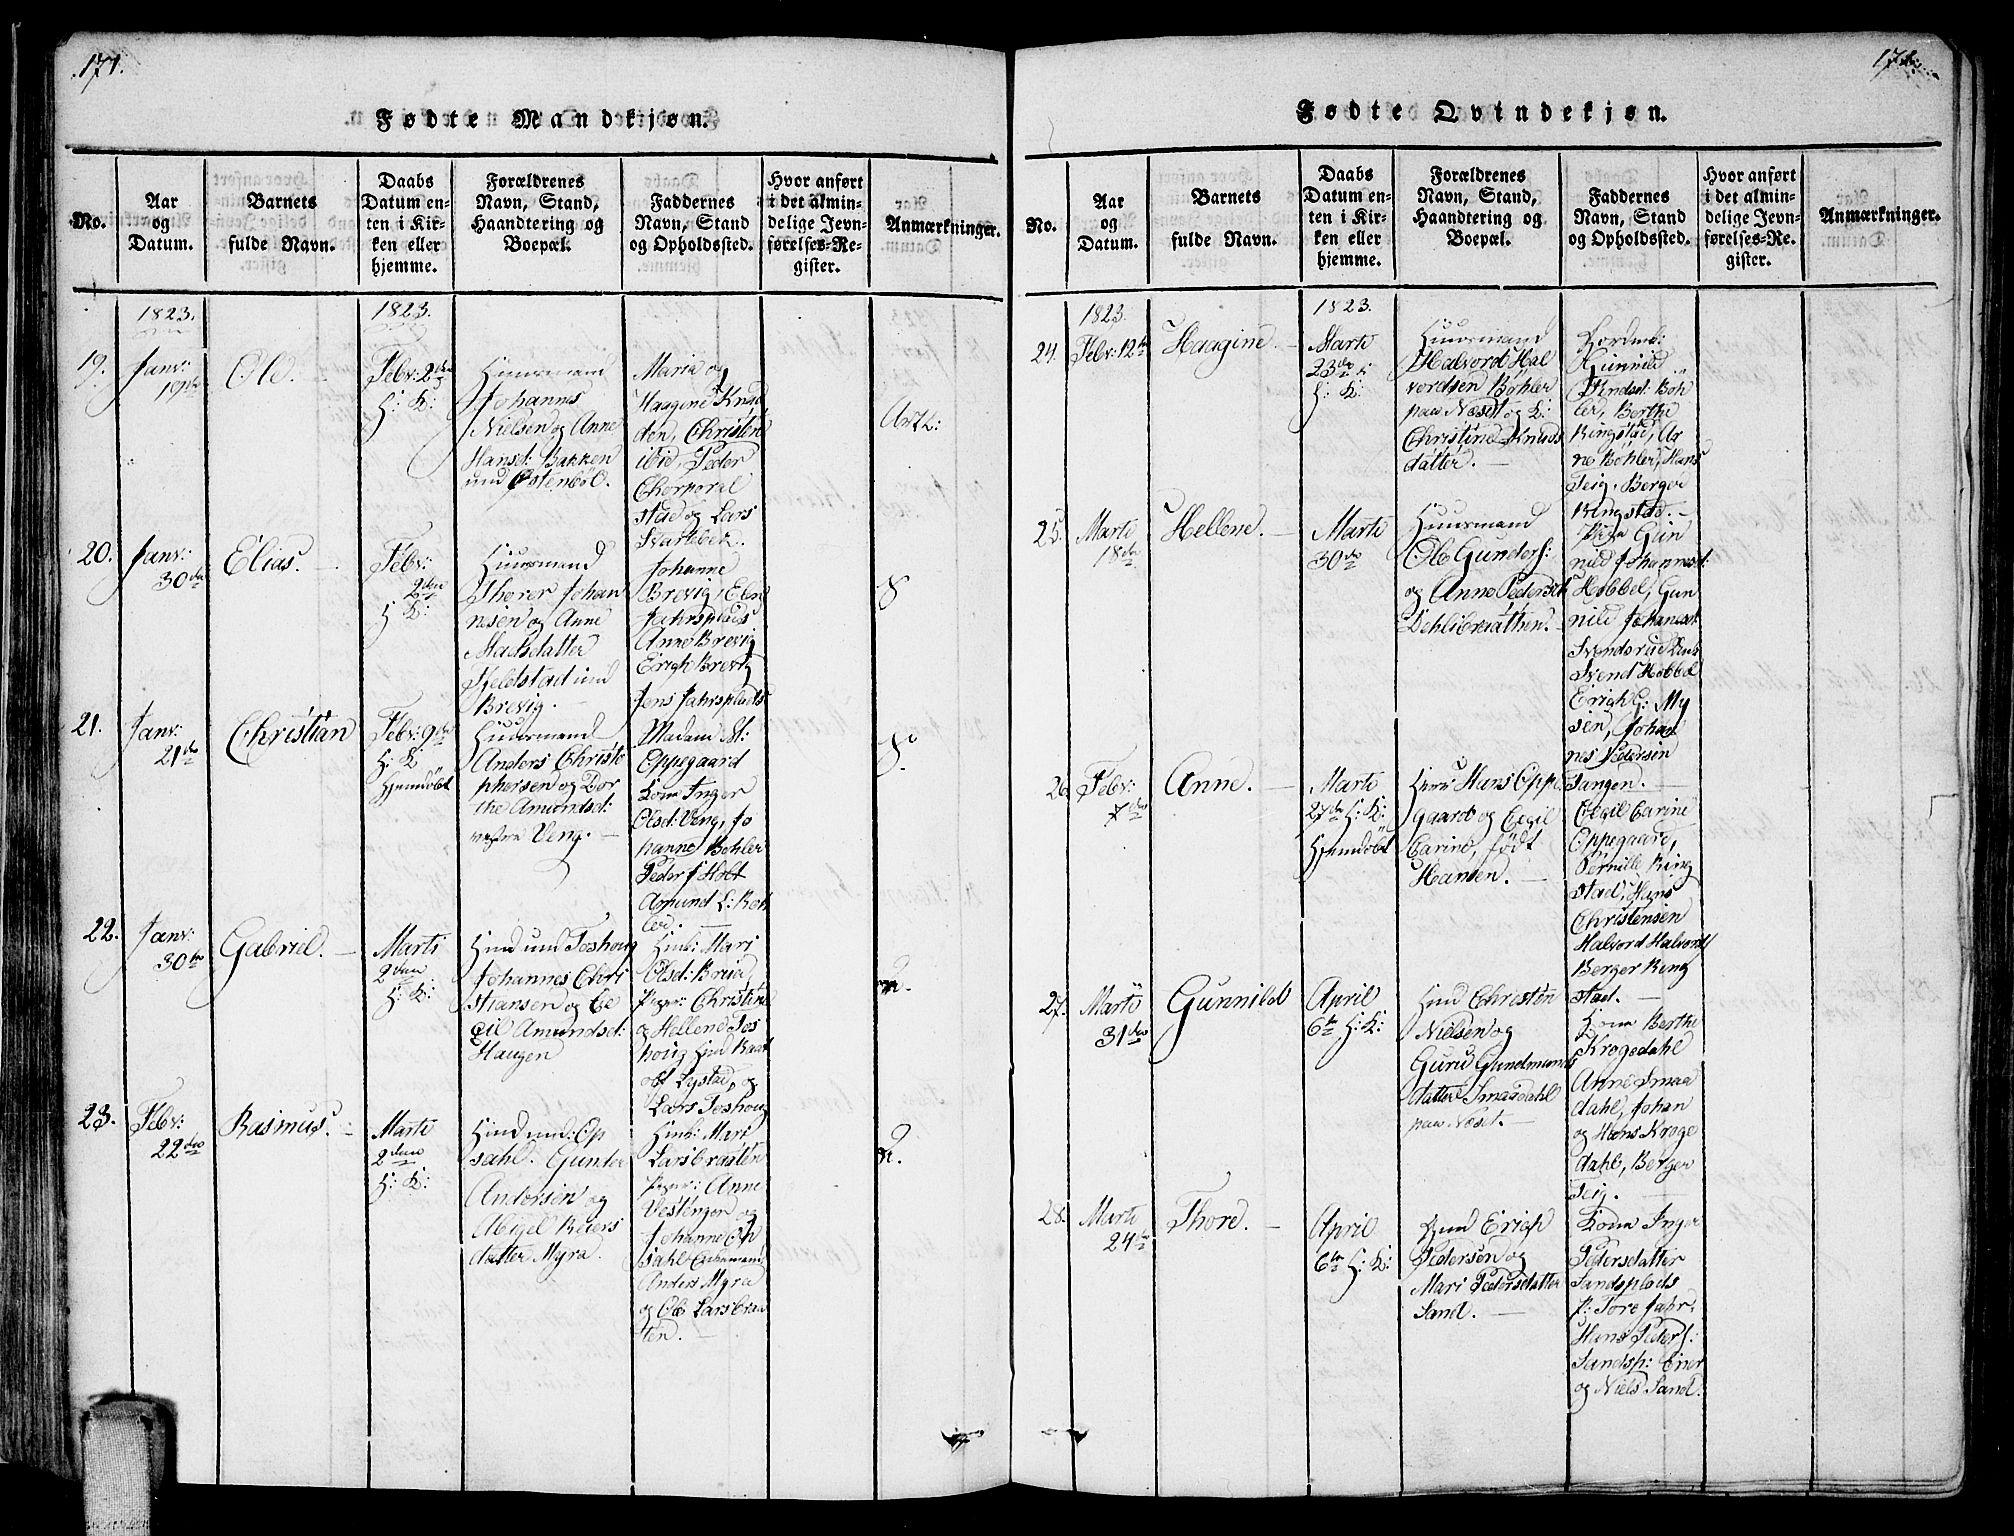 171.
Fødte Mandkjøn.
No.
Aar
og
Datum.
Barnets
fulde Navn.
Daabs
Datum en-
ten i Kir-
ken eller
hjemme.
Forældrenes
Navn, Stand,
Haandtering og
Boepæl.
Faddernes
Navn, Stand
og Opholdssted.
Hvor anført
i det almin-
delige Jevn-
førelses-Re-
gister.
Anmærkninger.
1823.
1823.
19.
Janv:
19de
Ole.
Febr: 2den
H: K:
Huusmand
Johannes
Nielsen og Anne
Hansd: Bakken
und Østenböl.
Maria og
Haagine Knud
den, Christen
ibid, Peder
Chorporal
stad og Lars
Svartebek.
20.
Janv:
30de
Elias.
Febr:
2den
H: K:
Huusmand
Thorer Johan
nisen og Anne
Madsdatter
Fjeldstad und
Brevig.
Johanne
Brevig, Elen
Jahrsplads
Anne Brevig
Erigh Brevig
Jens Jahrsplads
8
21.
Janv:
21de
Christian
Febr: 9de
H: K
Hjemdöbt
Huusmand
Anders Christo
phersen og Dor
the Amundsd:
vestre Veng.
Madam M:
Oppegaard
Kone Inger
Olsd: Veng, Jo
hanne Bohler
Peder J Holt
Amund L: Boh
ler.
8.
22.
Janv:
30te
Gabriel.
Marti
2den
H: K:
Hmd und Toshoug
Johannes Chri
stiansen og Ce
cil Amundsd:
Haugen
Hmk: Mari
Olsd: Bru
Piger: Christine
og Hellene Tos
houg
Lystad, og
Lars Toshoug
2.
23.
Febr:
22de
Rasmus.
Marti
2den
H: K:
Hmd und: Op
sahl. Gunder
Andersen og
Abigel Reiers
datter Myra.
Hmk: Mari
Larsbraaten
Piger: Anne
Vestengen og
Johanne Op
sahl
Anders Myra
og Ole Larsbraa
ten.
2.
172.
Fødte Qvindekjøn.
No.
Aar
og
Datum.
Barnets
fulde Navn.
Daabs
Datum en-
ten i Kir-
ken eller
hjemme.
Forældrenes
Navn, Stand,
Haandtering og
Boepæl.
Faddernes
Navn, Stand
og Opholdssted.
Hvor anført
i det almin-
delige Jevn-
førelses-Re-
gister.
Anmærkninger.
1823.
1823.
24.
Febr: 12te
Haagine.
Marti
23de
H: K:
Huusmand
Halvord Hal
vordsen Böhler
paa Næset og K:
Christine Knuds
datter.
Gunnild
Böh
ler, Berthe
Ringstad, Ar
ne Bohler, Hans
Teig, Berger
Ringstad.
25.
Marti
18de
Hellene.
Marti
30de
Huusmand
Ole Gunders:
og Anne Pedersdt
Dehlibraathen.
Piga Gun
nild Johannesd:
Hobbel, Gun
nild Johannesd:
Svendsrud
Svend Hobbel
Erigh G: My
sen, Johan
nes Pedersen
Tangen.
26.
Febr:
7de
Anne.
Marti
27de H: K:
Hjemdöbt
Herr Hans Opp
gaard og Cecil
Carine, födt
Hansen.
Cecil Carine
Oppegaard,
Pernille Ring
stad, Hans
Christensen
Halvord Halvords
Berger Ring
stad.
27.
Marti
31de
Gunnild
April
6te H: K:
Hmd Christen
Nielsen og
Guru Gundmunds
datter Smaadahl
paa Næset.
Kone Berthe
Krogedahl
Anne Smaa
dahl, Johan
og Hans Kroge
dahl, Berger
Teig.
28.
Marti
24de
Thore.
April
6te H: K:
Hmd Erich
Pedersen og
Mari Pedersdatter
Sand.
Kone Inger
Pedersdatter
Sandsplads
P: Tore Jahr,
Hans Peders:
Sandspl: Ener
og Niels Sand.